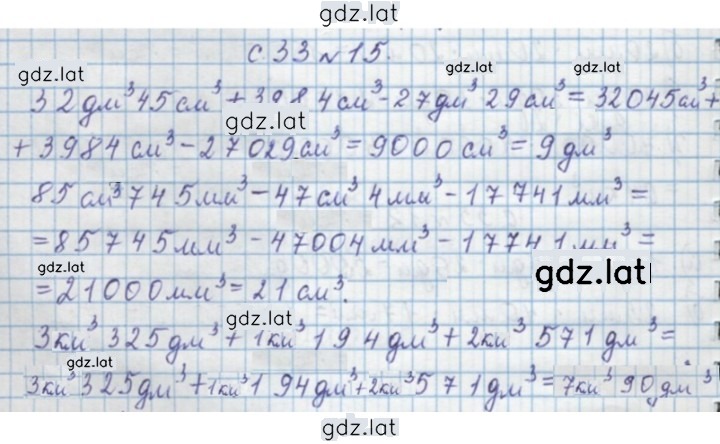 gdz.lat
с. 33 № 15.
gdz.lat gdz.lat gdz.lat
32 дм³ 45 см³ + 3984 см³ - 27 дм³ 29 см³ = 32045 см³ +
gdz.lat
+ 3984 см³ - 27029 см³ = 9000 см³ = 9 дм³
85 см³ 745 мм³ - 47 см³ 4 мм³ - 17741 мм³ =
= 85745 мм³ - 47004 мм³ - 17741 мм³ =
gdz.lat gdz.lat
= 21000 мм³ = 21 см³.
gdz.lat
3 км³ 325 дм³ + 1 км³ 194 дм³ + 2 км³ 571 дм³ =
gdz.lat
3 км³ 325 дм³ + 1 км³ 194 дм³ + 2 км³ 571 дм³ = 7 км³ 90 дм³
gdz.lat